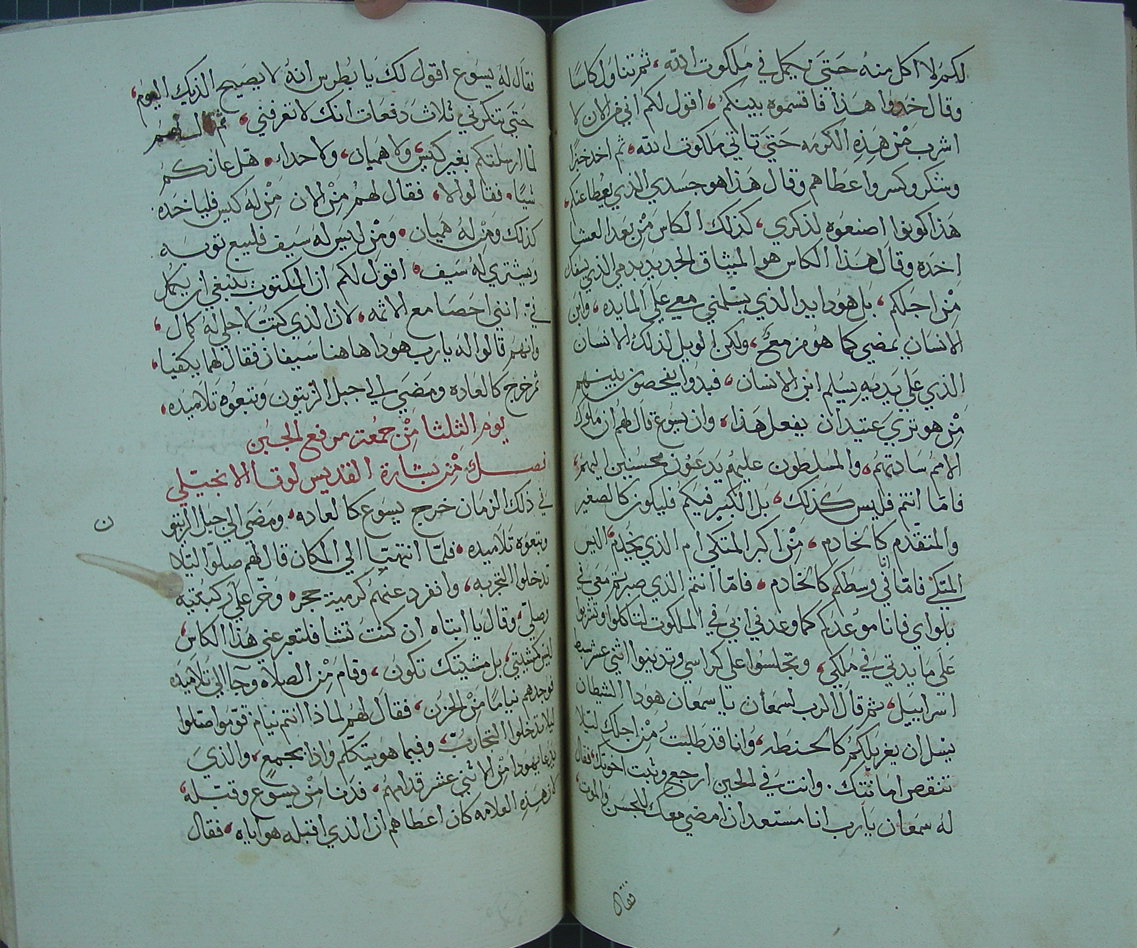 لكم لا اكل منه حتى يكمل في ملكوت الله، ثم تناول كاسا
وقال خدوا هذا فاقسموه بينكم، اقول لكم اني من الان لا
اشرب من هذه الكرمه حتى تاتي ملكوت الله، ثم اخد خبزا
وشكر وكسر واعطاهم وقال هذا هو جسدي الذي يعطا عنكم
هذا كونوا اصنعوه لذكري، كذلك الكاس من بعد العشا
اخده وقال هذا الكاس هو الميثاق الجديد بدمي الذي يسفك
من اجلكم، بل هودا يد الذي يسلمني معي على المايده، وابن
الانسان يمضي كما هو مزمع، ولكن الويل لذلك الانسان
الذي على يديه يسلم ابن الانسان، فبدوا يفحصون بينهم
من هو تري عتيد ان يفعل هذا، وان يسوع قال لهم ان ملوك
الامم سادتهم، والمسلطون عليهم يدعون محسنين اليهم،
فاما انتم فليس كذلك، بل الكبير فيكم فليكون كالصغير
والمتقدم كالخادم، من اكبر المتكي ام الذي يخدم، اليس
المتكي فاما انا في وسطكم كالخادم، فاما انتم الذي صبرتم معي في
بلواي فانا موعدكم كما وعدني ابي في الملكوت لتاكلوا وتشربوا
على مايدتي في ملكي، وتجلسوا على كراسي وتدينوا اثني عشر سبط
اسراييل، ثم قال الرب لسمعان يا سمعان هودا الشيطان
يسل ان يغربلكم كالحنطه، وانا قد طلبت من اجلك ليلا
تنقص امانتك. وانت في الحين ارجع وثبت اخوتك، فقال
له سمعان يارب انا مستعد ان امضي معك للحبس والموت،
فقال
فقال له يسوع اقول لك يا بطرس انه لا يصيح الديك اليوم،
حتى تنكرني ثلاث دفعات انك لا تعرفني، ثم قال لهم
لما ارسلتكم بغير كيس ولا هميان، ولا حداء، هل عازكم
شيا، فقالوا لا، فقال لهم من الان من له كيس فلياخده
كذلك ومن له هميان، ومن ليس له سيف فليبيع ثوبه
ويشتري له سيف، اقول لكم ان المكتوب ينبغي ان يكمل
في، انني احصا مع الاثمه، لان الذي كتب لاجلي له كمال،
وانهم قالوا له يا رب هودا هاهنا سيفان فقال لهما يكفيا،
ثم خرج كالعاده ومضي الي جبل الزيتون وتبعوه تلاميده،
يوم الثلثا من جمعة مرفع الجبن
فصل من بشارة القديس لوقا الانجيلي
في ذلك الزمان خرج يسوع كالعاده، ومضي الي جبل الزيتو
ن
وتبعوه تلاميده، فلما انتهي الي المكان قال لهم صلوا ليلا
تدخلوا التجربه، وانفرد عنهم كرمية حجر، وخر على ركبتيه
وصلي، وقال يا ابتاه ان كنت تشا فلتعبر عني هذا الكاس،
ليس كمشيتي، بل مشيتك تكون، وقام من الصلاة وجا الي تلاميده
فوجدهم نياما من الحزن، فقال لهم لماذا انتم نيام قوموا صلوا
ليلا تدخلوا التجارب، وفيما هو يتكلم واذا بجمع، والذي
يدعا يهودا من الاثني عشر قدامهم، فدنا من يسوع وقبله،
لان هذه العلامه كان اعطاهم ان الذي اقبله هو اياه، فقال